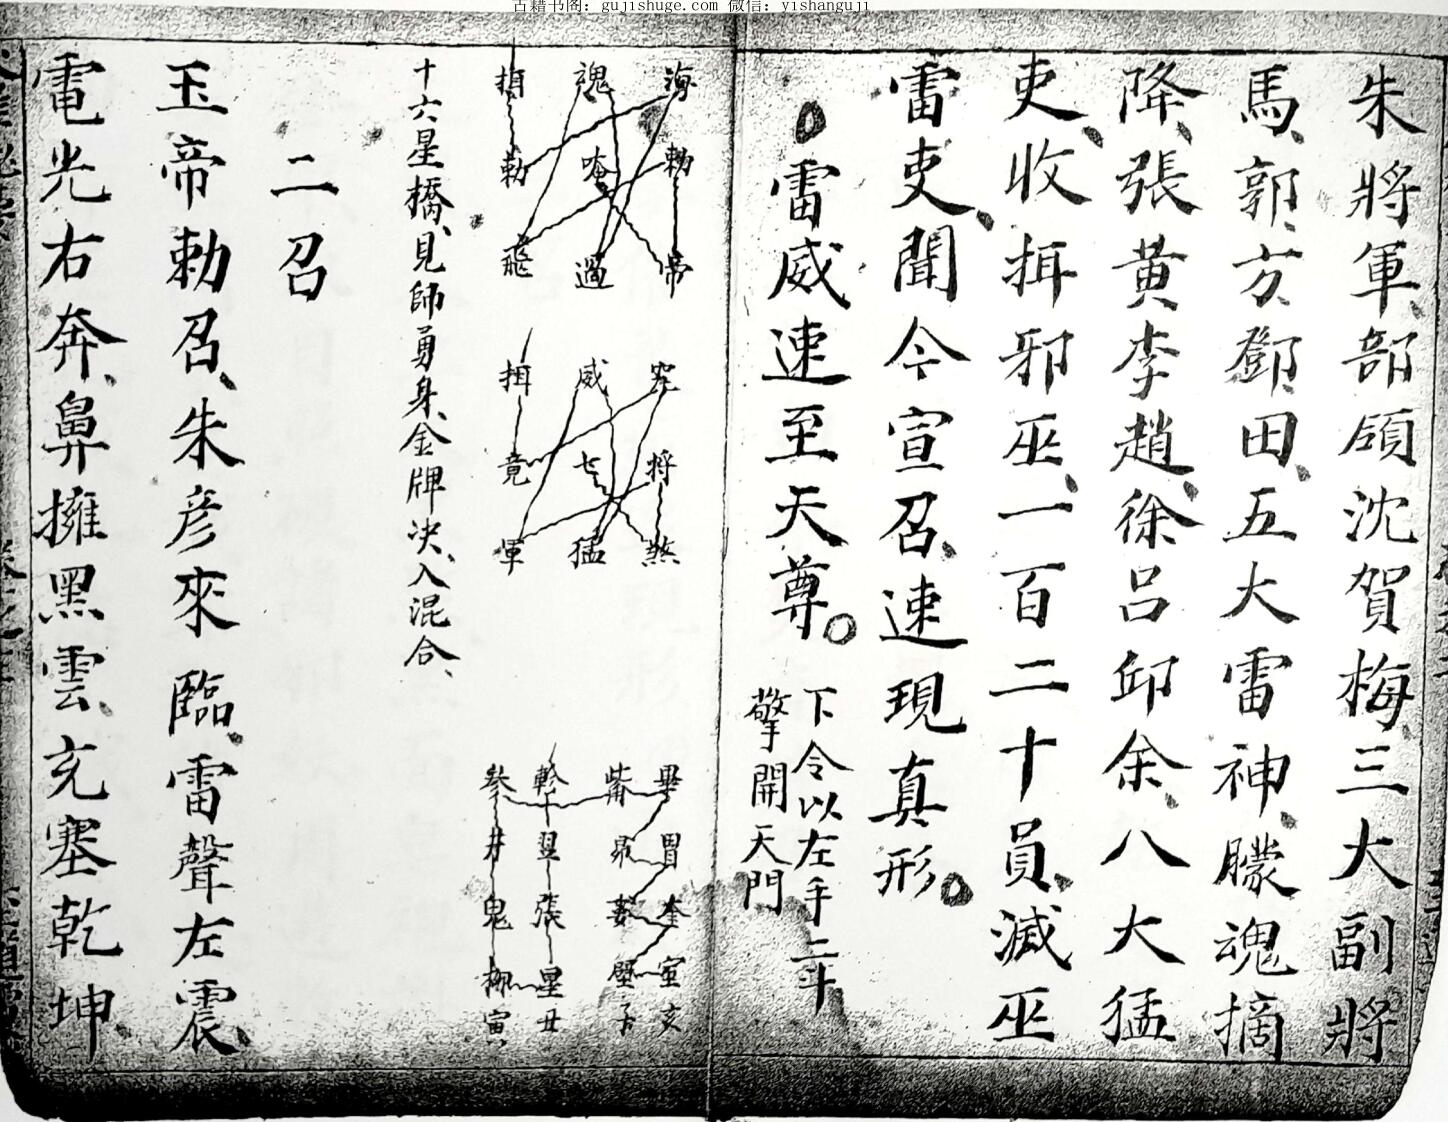 古籍书阁：gujishuge.com 微信：yishanguji
朱將軍、部領沈賀梅三大副將
馬、郭、方、鄧、田、五大雷神、朦魂摘
降、張黃李趙、徐呂邱余、八大猛
吏、收捐邪巫、一百二十員、滅巫
雷吏、聞今宣召、速現真形。
雷威速至天尊。
下令以左手二斗
擎開天門
海 勅 帝
魂 唵 過
捐 勒 飛
將 煞
威 七 猛
捐 竟 軍
畢 胃 奎 室 亥
觜 昴 婁 壁 子
軫 翌 張 星 丑
參 井 鬼 柳 寅
十六星橋、見師勇身、金牌決、入混合、
二召
玉帝勅召、朱彦來臨、雷聲左震、
電光右奔、鼻擁黑雲、充塞乾坤、